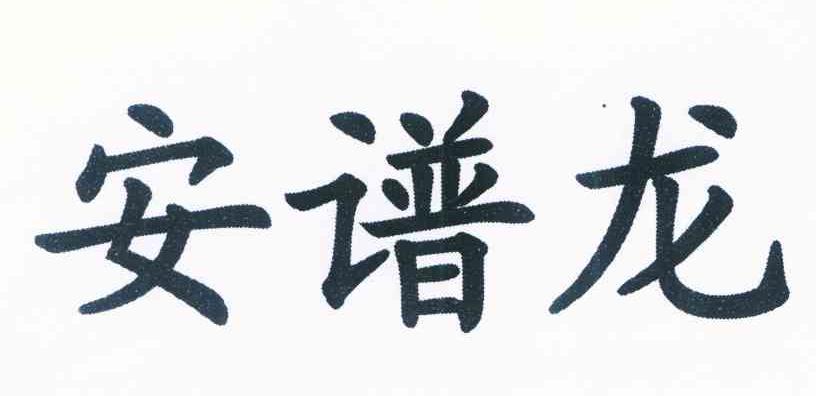 安谱龙